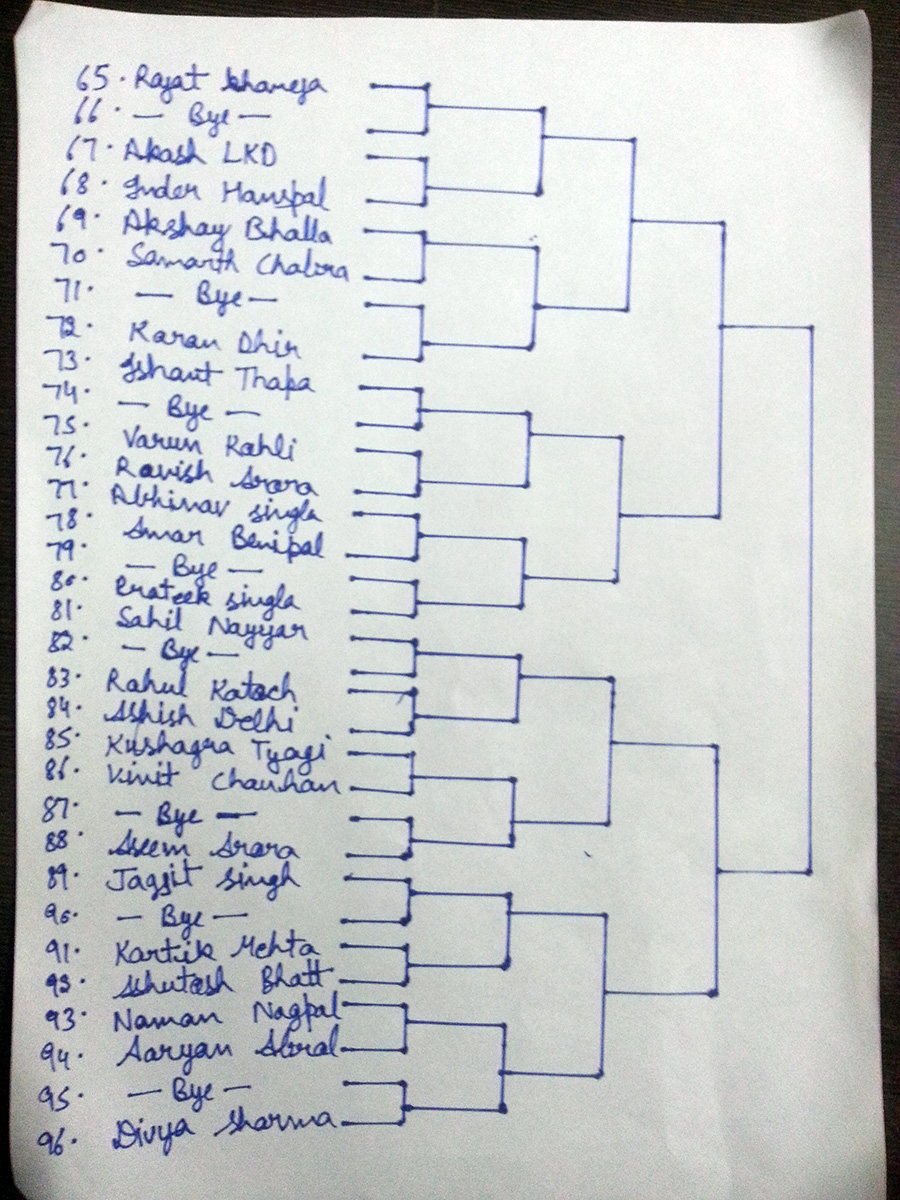 65. Rajat Khaneja
66. — Bye —
67. Akash LKD
68. Inder Hanspal
69. Akshay Bhalla
70. Samarth Chabra
71. — Bye —
72. Karan Dhir
73. Ishant Thapa
74. — Bye —
75. Varun Kahli
76. Ravish Arora
77. Abhinav Singla
78. Amar Benipal
79. — Bye —
80. Prateek Singla
81. Sahil Nayyar
82. — Bye —
83. Rahul Katoch
84. Ashish Delhi
85. Kushagra Tyagi
86. Vinit Chauhan
87. — Bye —
88. Aseem Arora
89. Jagjit Singh
90. — Bye —
91. Kartik Mehta
92. Ashutosh Bhatt
93. Naman Nagpal
94. Aaryan Abral
95. — Bye —
96. Divya Sharma